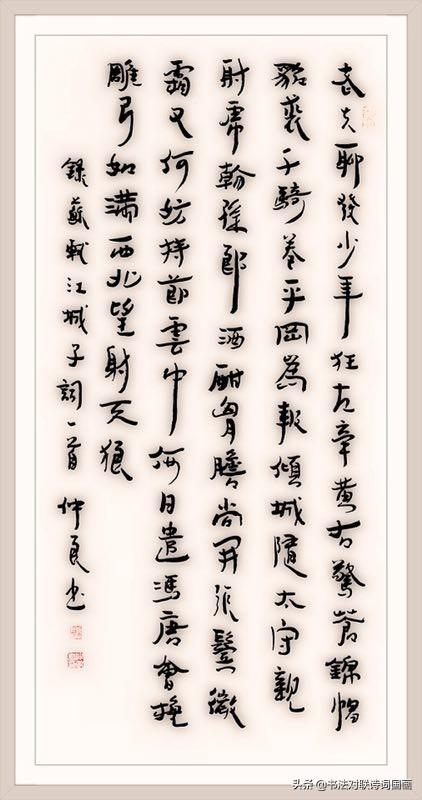 老夫聊發少年狂左牽黃右擎蒼錦帽
貂裘千騎卷平岡為報傾城隨太守親
射虎看孫郎酒酣胷膽尚開張鬢微
霜又何妨持節雲中何日遣馮唐會挽
雕弓如滿西北望射天狼
錄蘇軾江城子詞一首 仲良書
头条 @书法对联诗词国画